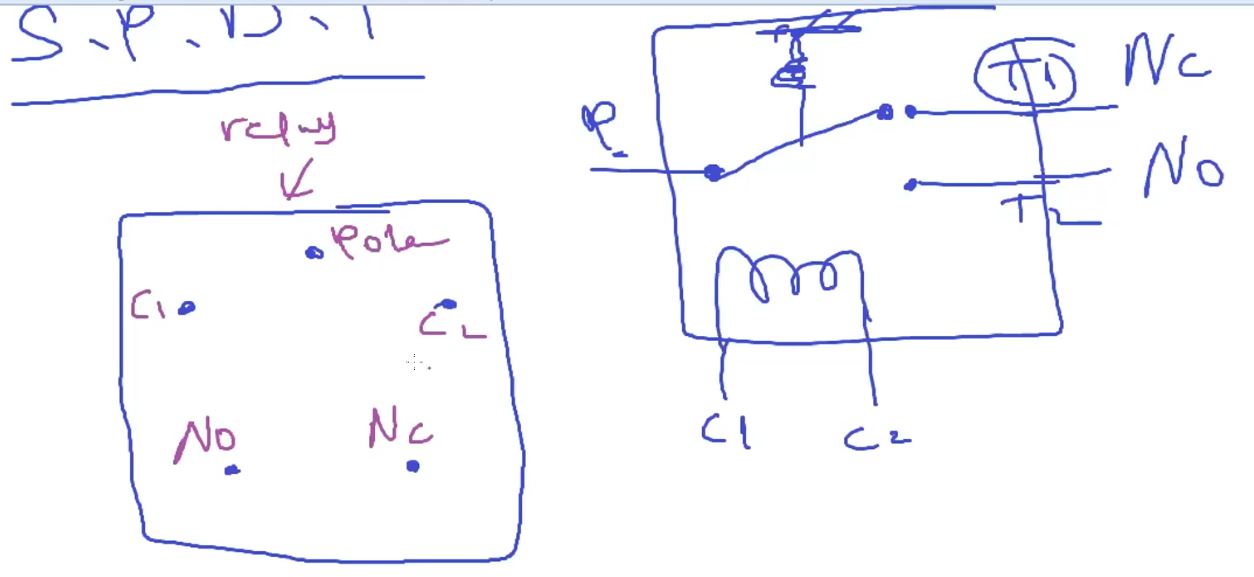 S.P.D.T
relay
Pole
C1
C2
NO
NC
P
T1
NC
NO
T2
C1
C2